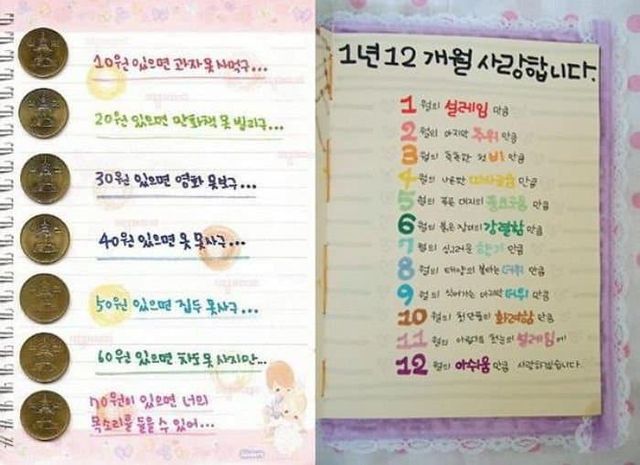 10원 있으면 과자 못 사먹구...
20원 있으면 만화책 못 빌리구...
30원 있으면 영화 못보구...
40원 있으면 옷 못사구...
50원 있으면 집두 못사구...
60원 있으면 차도 못 사지만...
70원이 있으면 너의
목소리를 들을 수 있어...
1년 12개월 사랑합니다.
1월의 설레임 만큼
2월의 마지막 추위 만큼
3월의 촉촉한 첫 비 만큼
4월의 나른한 따사로움 만큼
5월의 푸른 대지의 풍요로움 만큼
6월의 붉은 장미의 강렬함 만큼
7월의 싱그러운 향기 만큼
8월의 태양의 불타는 더위 만큼
9월의 마지막 더위 만큼
10월의 첫 단풍의 화려함 만큼
11월의 첫눈의 설레임
12월의 아쉬움 만큼 사랑하겠습니다.